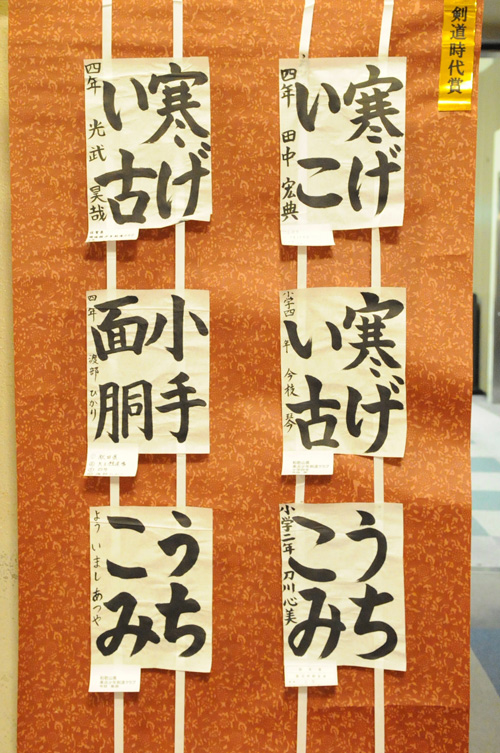 剣道時代賞
寒げ
いこ
四年 田中 宏典
寒げ
い古
四年 光武 昊哉
寒げ
い古
小学四年 今枝 琴
小手
面胴
四年 渡部 ひかり
うち
こみ
小学二年 刀川心美
うち
こみ
よう いまし あつや